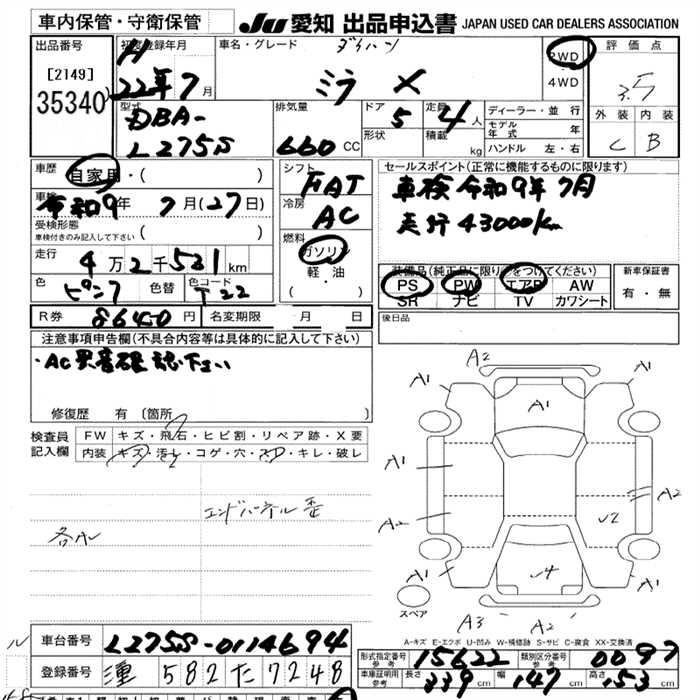 車内保管・守衛保管
JU 愛知 出品申込書 JAPAN USED CAR DEALERS ASSOCIATION
出品番号
[2149]
35340
初度登録年月
H
22年7月
車名・グレード ダイハツ
ミラ X
2WD
4WD
評価点
3.5
外装 内装
C B
型式
DBA-
L275S
排気量
660 CC
ドア 5
形状
定員 4人
積載 kg
ディーラー・並行
モデル年式 年
ハンドル 左・右
車歴 自家用・( )
車検
令和9年7月(27日)
受検形態
車検付きのみ記入して下さい ( )
走行 4万2千531km
色 ピンク 色替 色コード T22
シフト
FAT
冷房
AC
燃料
ガソリン
軽・油
( )
セールスポイント(正常に機能するものに限ります)
車検令和9年7月
走行43000km
装備品(純正品に限り○をつけてください)
PS PW エアB AW
SR ナビ TV カワシート
新車保証書
有・無
R券 8640円 名変期限 月 日
後日品
注意事項申告欄(不具合内容等は具体的に記入して下さい)
・AC異音確認下さい
修復歴 有 〔箇所 〕
検査員
記入欄
FW キズ・飛石・ヒビ割・リペア跡・X要
内装 キズ・汚レ・コゲ・穴・スレ・キレ・破レ
各AL
A2
A1 A1
A1
A1
A2
A2
J2
A1 A1
J4
スペア
A3 A2
A-キズ E-エクボ U-凹み W-補修跡 S-サビ C-腐食 XX-交換済
車台番号 L275S-0114694
登録番号 582た7248
型式指定番号 参考 15622
類別区分番号 参考 0097
車庫証明用 参考 長さ 339cm 幅 147cm 高さ 153cm